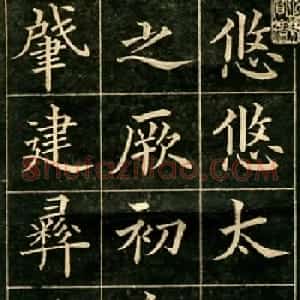 悠悠太
之厥初
肇建彝
Shufazidao.com